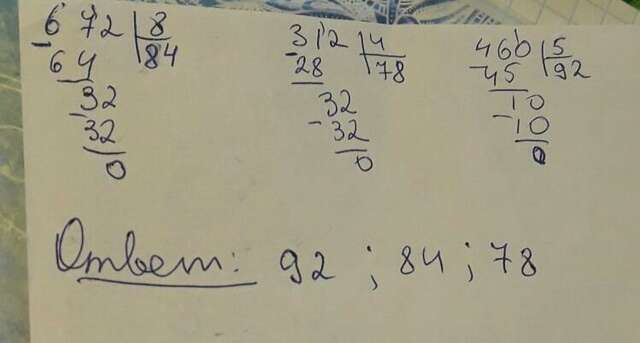 672 | 8
- 64 | 84
32
- 32
0
312 | 4
- 28 | 78
32
- 32
0
460 | 5
- 45 | 92
10
- 10
0
Ответ: 92 ; 84 ; 78